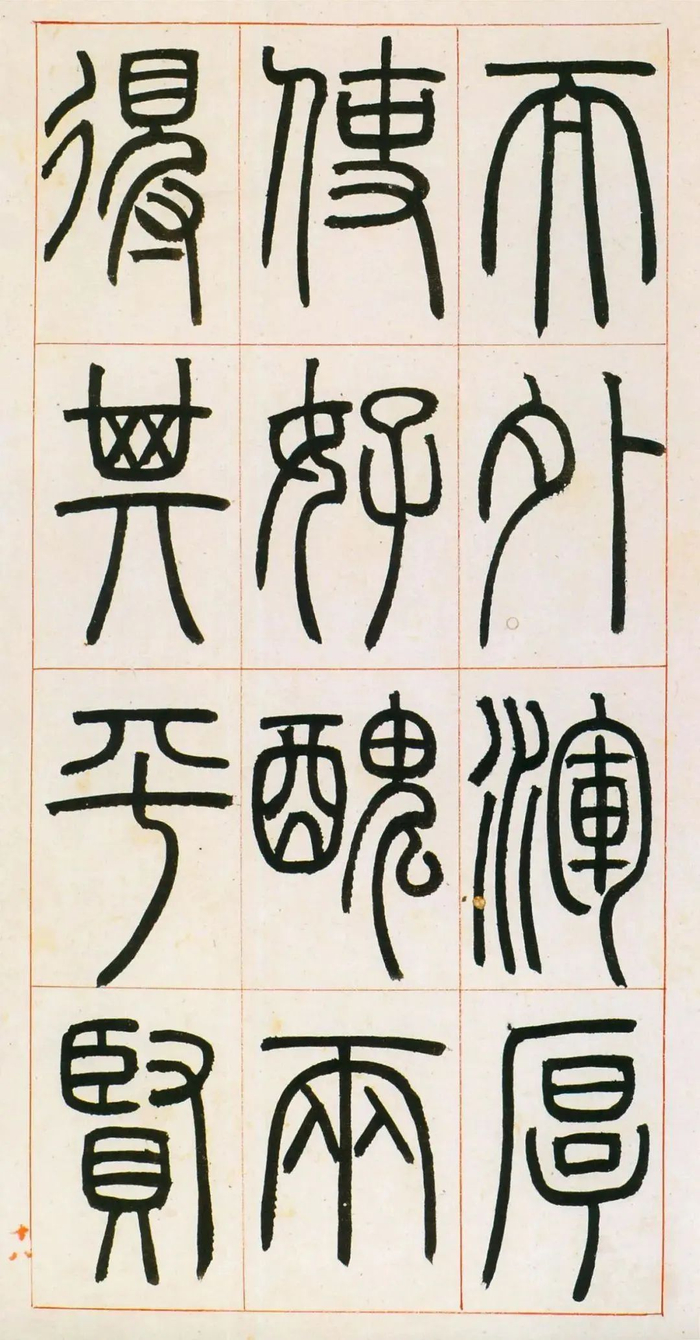 而外渾厚
使好醜兩
得其平賢